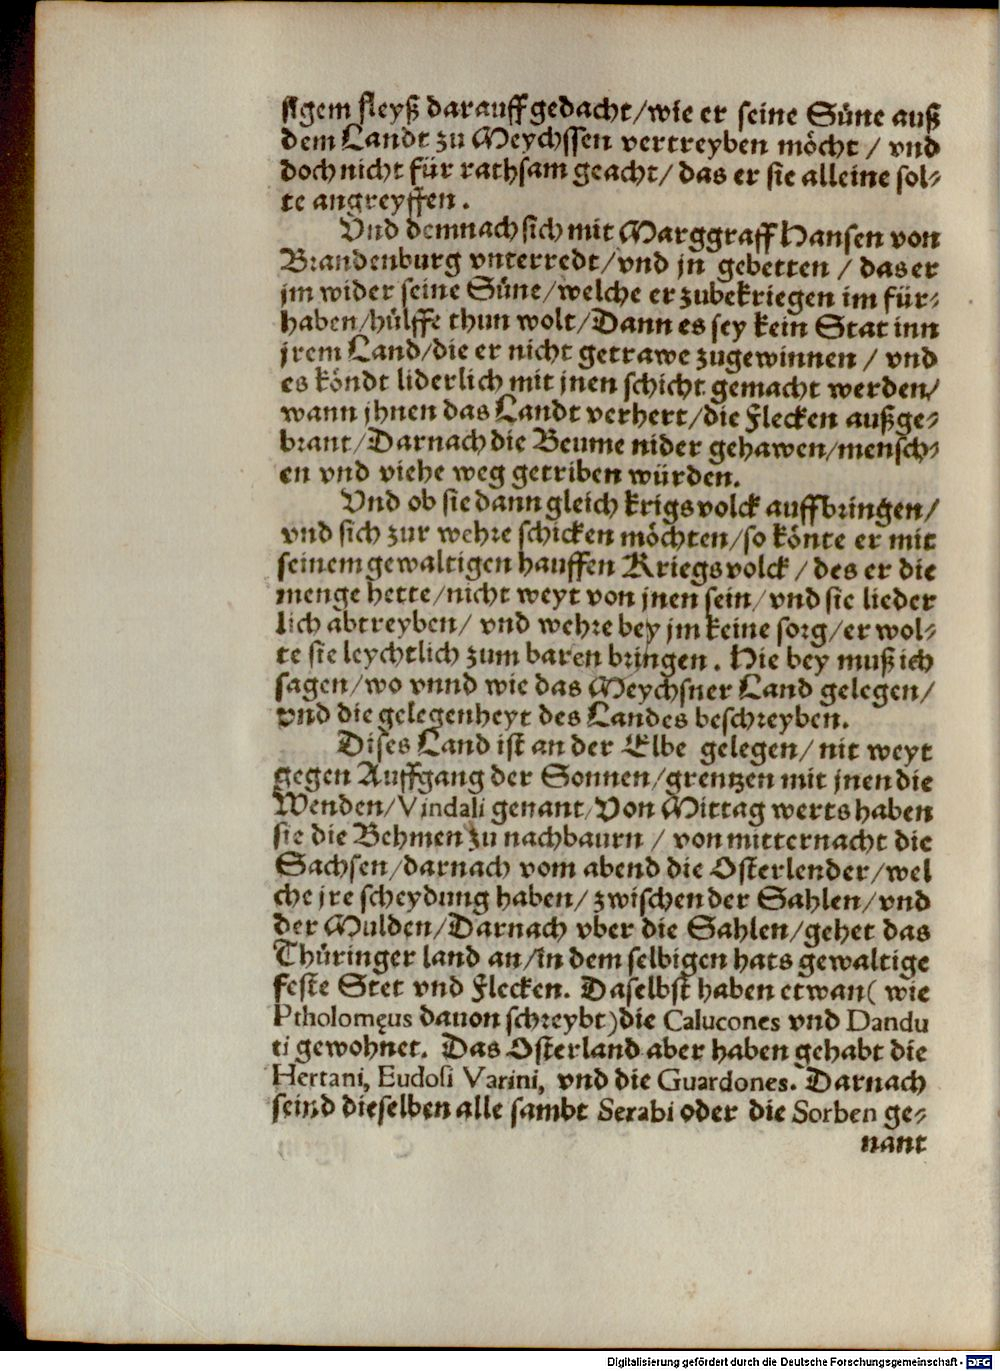 sigem fleyß darauff gedacht/wie er seine Süne auß
dem Landt zu Meychssen vertreyben möcht / vnd
doch nicht für rathsam geacht/ das er sie alleine sol-
te angreyffen.
Vnd demnach sich mit Marggraff Hansen von
Brandenburg vnterredt/vnd jn gebetten / das er
jm wider seine Süne/welche er zubekriegen im für-
haben/hülffe thun wolt/Dann es sey kein Stat inn
jrem Land/die er nicht getrawe zugewinnen / vnd
es köndt liderlich mit jnen schicht gemacht werden/
wann jhnen das Landt verhert/die Flecken außge-
brant/Darnach die Beume nider gehawen/mensch-
en vnd viehe weg getriben würden.
Vnd ob sie dann gleich krigsvolck auffbringen/
vnd sich zur wehre schicken möchten/so könte er mit
seinem gewaltigen hauffen Kriegsvolck / des er die
menge hette/nicht weyt von jnen sein/vnd sie lieder
lich abtreyben/ vnd wehre bey jm keine sorg/er wol-
te sie leychtlich zum baren bringen. Hie bey muß ich
sagen/wo vnnd wie das Meychsner Land gelegen/
vnd die gelegenheyt des Landes beschreyben.
Dises Land ist an der Elbe gelegen/ nit weyt
gegen Auffgang der Sonnen/grentzen mit jnen die
Wenden/Vindali genant/Von Mittag werts haben
sie die Behmen zu nachbaurn / von mitternacht die
Sachsen/darnach vom abend die Osterlender/wel
che jre scheydung haben/ zwischen der Sahlen/vnd
der Mulden/Darnach vber die Sahlen/gehet das
Thüringer land an/in dem selbigen hats gewaltige
feste Stet vnd Flecken. Daselbst haben etwan( wie
Ptholomęus dauon schreybt)die Calucones vnd Dandu
ti gewohnet. Das Osterland aber haben gehabt die
Hertani, Eudosi Varini, vnd die Guardones. Darnach
seind dieselben alle sambt Serabi oder die Sorben ge-
nant
Digitalisierung gefördert durch die Deutsche Forschungsgemeinschaft - DFG